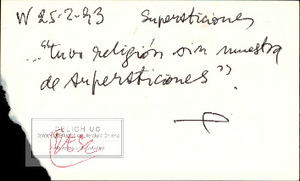 W 25-2-93 Supersticiones
..."tuvo religión sin muestra
de supersticiones".
CELICH UC